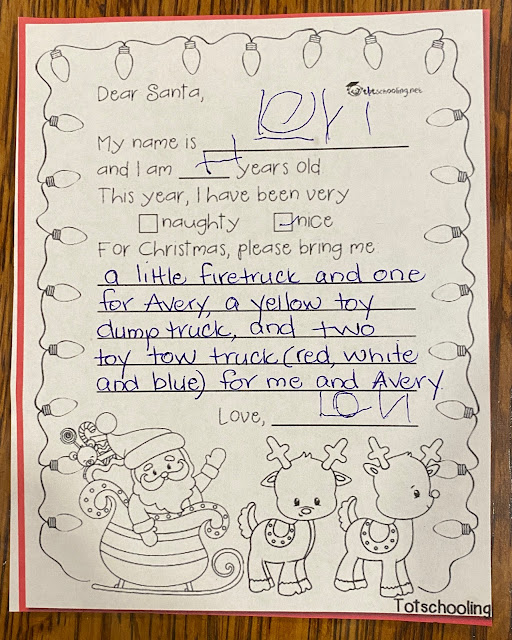 totschooling.net
Dear Santa,
My name is
and I am years old
This year, I have been very
naughty nice
For Christmas, please bring me
a little firetruck and one
for Avery, a yellow toy
dump truck, and two
toy tow truck (red, white
and blue) for me and Avery
Love,
Totschooling